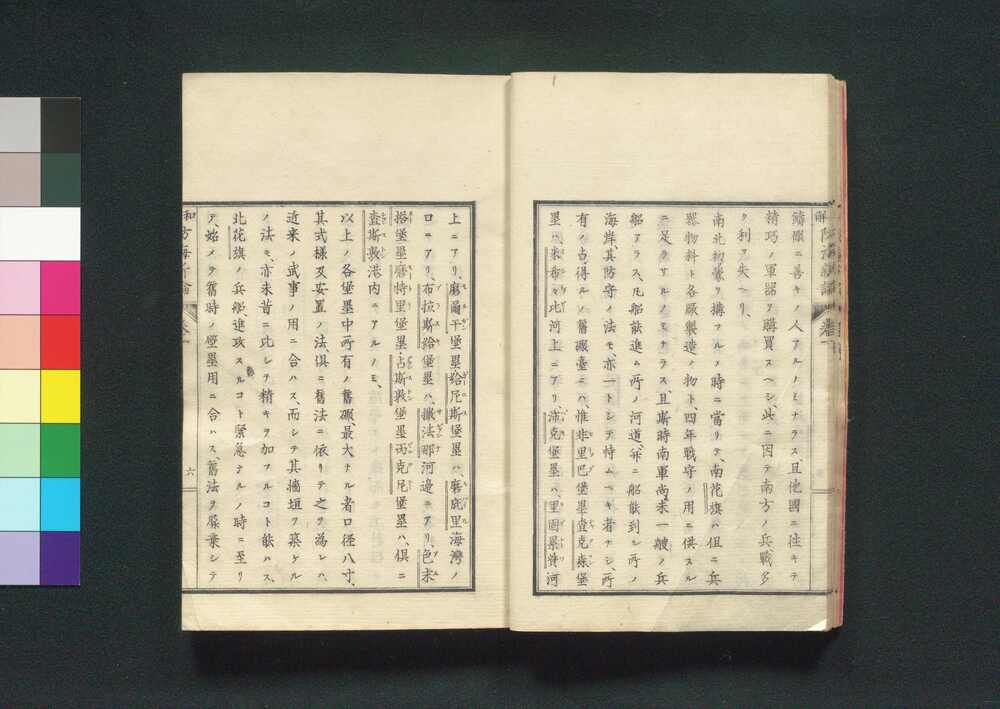 鑄礮ニ善キノ人アルノミナラス、且他國ニ往キテ
精巧ノ軍器ヲ購買スヘシ、此ニ因テ南方ノ兵、戰多
ク利ヲ失ヘリ、
南北物ヲ構フルノ時ニ當リテ、南花旗ハ但ニ兵
器物料ト各厰製造ノ物ト、四年戰守ノ用ニ供スル
ニ足ラサルノミナラス、且斯時南軍尚未一艘ノ兵
船アラス、凡船能進ム所ノ河道、幷ニ船能到ル所ノ
海岸、其防守ノ法モ、亦一トシテ恃ムヘキ者ナシ、所
有ノ占得ルノ舊礮臺ニハ、惟非里巴堡壘査克森堡
壘ハ、米希々比河上ニアリ、沛克堡壘ハ、里固曩賛河
上ニアリ、磨爾干堡壘給尼斯堡壘ハ、磨庇里海灣ノ
口ニアリ、布拉斯給堡壘ハ、撒法那河邊ニアリ、色末
搭堡壘磨特里堡壘古斯敦堡壘丙克尼堡壘ハ、俱ニ
査斯敦港内ニアルノミ、
以上ノ各堡壘中所有ノ舊礮、最大ナル者口徑八寸、
其式様及安置ノ法俱ニ舊法ニ依リテ之ヲ為シハ、
近來ノ武事ノ用ニ合ハス、而シテ其墻垣ヲ築ケル
ノ法モ、亦未昔ニ比シテ精キヲ加フルコト能ハス、
北花旗ノ兵船、進攻スルコト緊急ナルノ時ニ至リ
テ、始メテ舊時ノ堡壘用ニ合ハス、舊法ヲ廢棄シテ
六